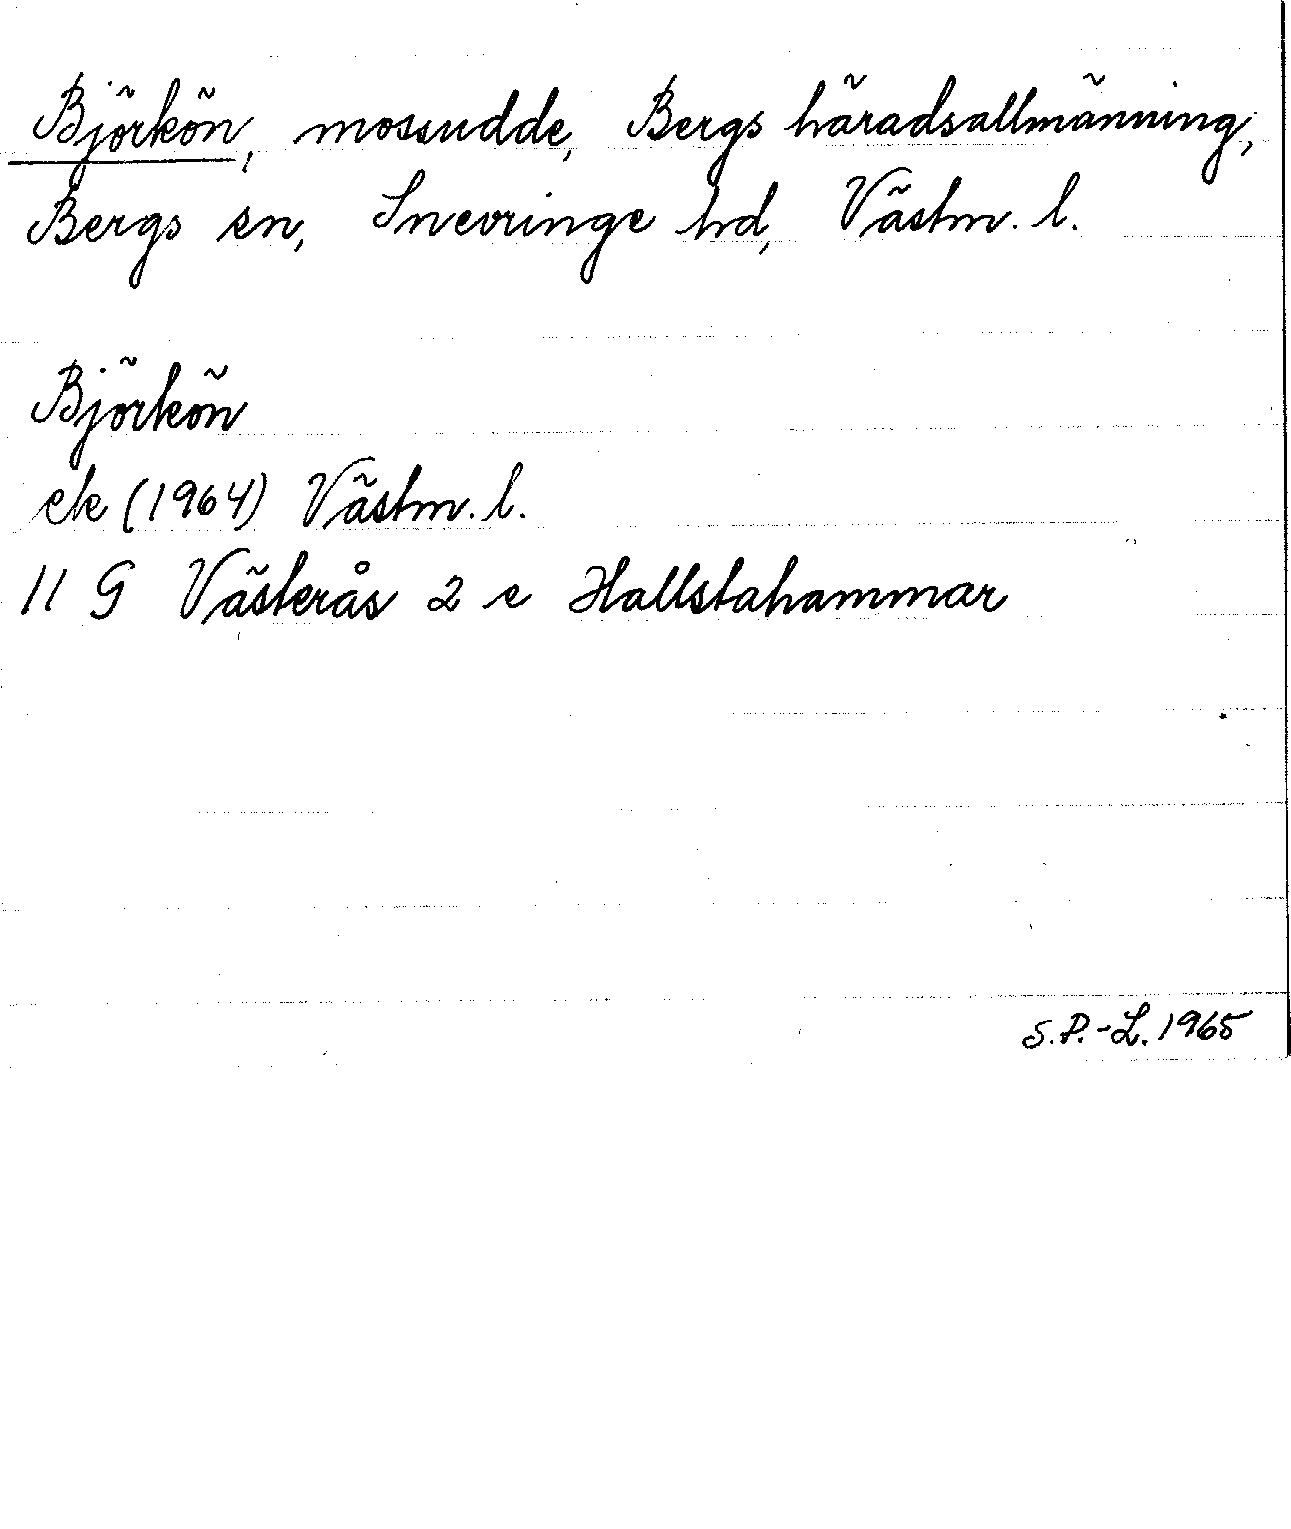 Björkön, mossudde, Bergs häradsallmänning,
Bergs sn, Snevringe hd, Västm. l.
Björkön
ek (1964) Västm. l.
11 G Västerås 2 e Hallstahammar
S.P.-L. 1965